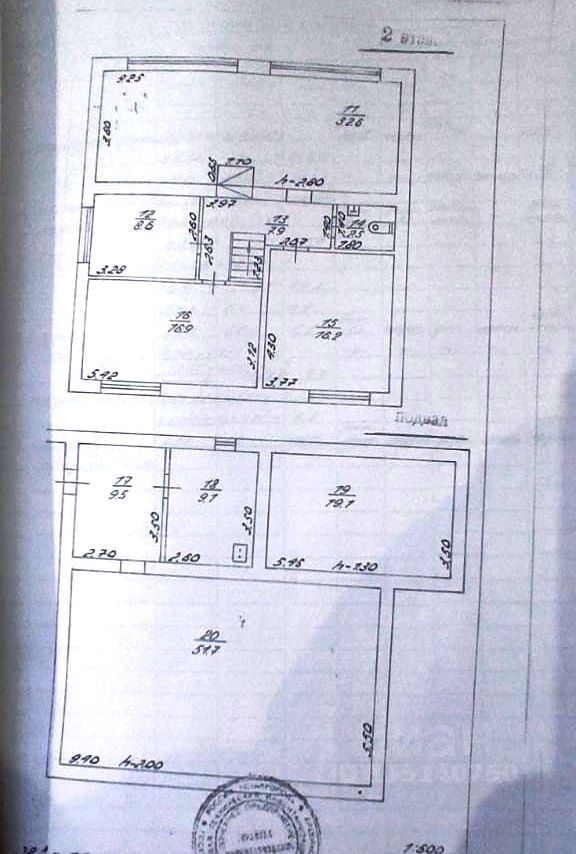 2 этаж
9.25
3.60
11
32.6
0.65
1.10
h-2.60
3.97
12
8.6
2.60
13
7.9
1.40
14
2.5
1.80
2.63
2.07
3.28
2.23
16
16.9
15
16.2
3.12
4.30
5.42
3.77
Подвал
17
9.5
18
9.1
19
19.1
3.50
3.50
3.50
2.70
2.60
5.45
h-2.30
20
51.7
5.50
9.40
h-2.00
1:500